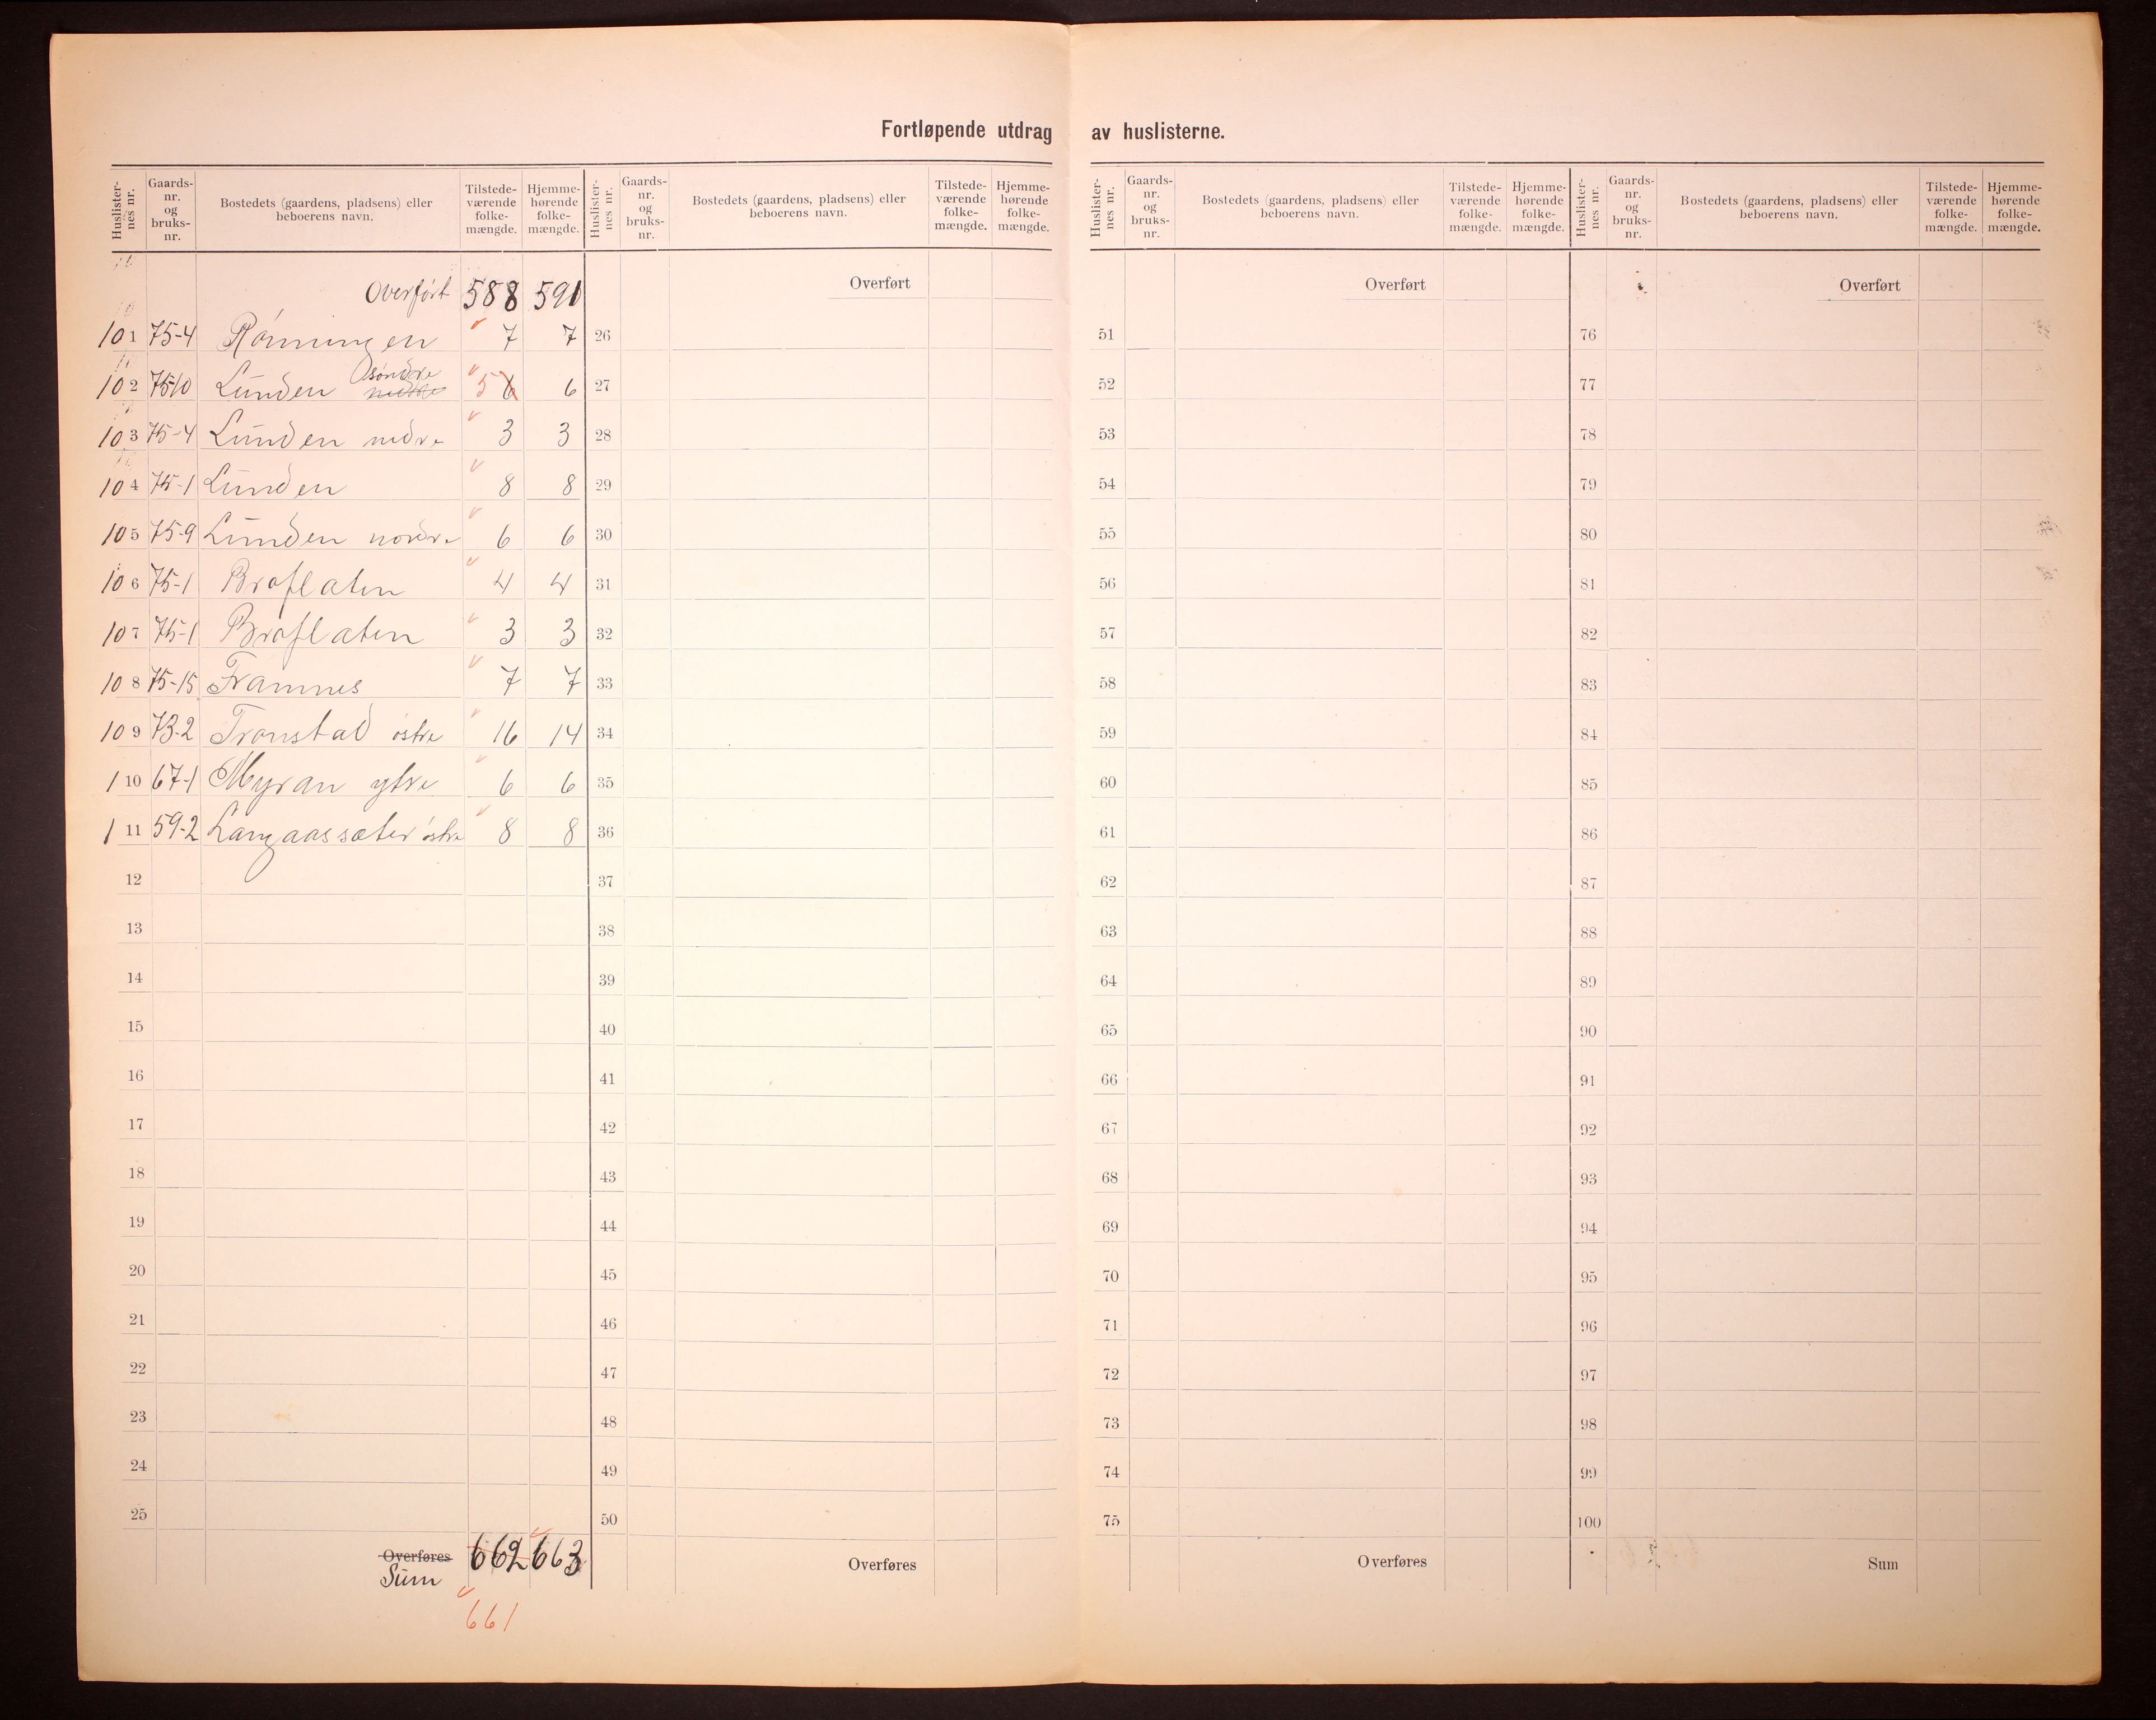 Fortløpende utdrag av huslisterne.
Huslisternes nr. Gaardsnr. og bruksnr. Bostedets (gaardens, pladsens) eller beboerens navn. Tilstedeværende folkemængde. Hjemmehørende folkemængde.
Overført 588 591
101 75-4 Rønningen 7 7
102 75-10 Lunden søndre 5 6 6
103 75-4 Lunden nedre 3 3
104 75-1 Lunden 8 8
105 75-9 Lunden nordre 6 6
106 75-1 Broflaten 4 4
107 75-1 Broflaten 3 3
108 75-15 Framnes 7 7
109 73-2 Tronstad östre 16 14
110 67-1 Myran ytre 6 6
111 59-2 Langaassæter östre 8 8
12
13
14
15
16
17
18
19
20
21
22
23
24
25
Overføres
Sum 662 663
661
Huslisternes nr. Gaardsnr. og bruksnr. Bostedets (gaardens, pladsens) eller beboerens navn. Tilstedeværende folkemængde. Hjemmehørende folkemængde.
Overført
26
27
28
29
30
31
32
33
34
35
36
37
38
39
40
41
42
43
44
45
46
47
48
49
50
Overføres
Huslisternes nr. Gaardsnr. og bruksnr. Bostedets (gaardens, pladsens) eller beboerens navn. Tilstedeværende folkemængde. Hjemmehørende folkemængde.
Overført
51
52
53
54
55
56
57
58
59
60
61
62
63
64
65
66
67
68
69
70
71
72
73
74
75
Overføres
Huslisternes nr. Gaardsnr. og bruksnr. Bostedets (gaardens, pladsens) eller beboerens navn. Tilstedeværende folkemængde. Hjemmehørende folkemængde.
Overført
76
77
78
79
80
81
82
83
84
85
86
87
88
89
90
91
92
93
94
95
96
97
98
99
100
Sum